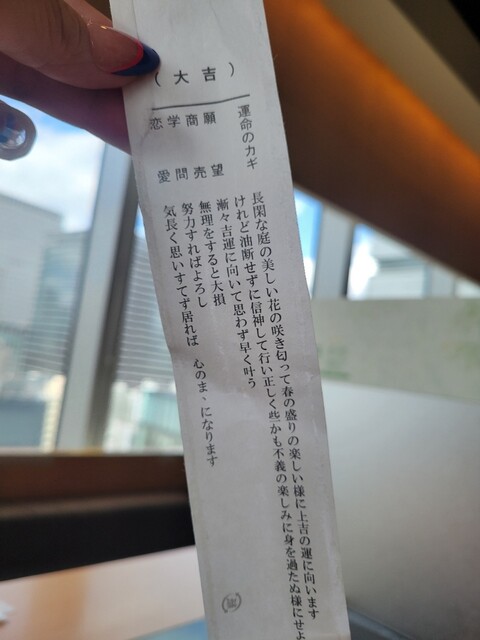 （大吉）
運命のカギ
長閑な庭の美しい花の咲き匂って春の盛りの楽しい様に上吉の運に向います
けれど油断せずに信神して行い正しく些かも不義の楽しみに身を過たぬ様にせよ
願望
漸々吉運に向いて思わず早く叶う
商売
無理をすると大損
学問
努力すればよろし
恋愛
気長く思いすてず居れば 心のまゝになります